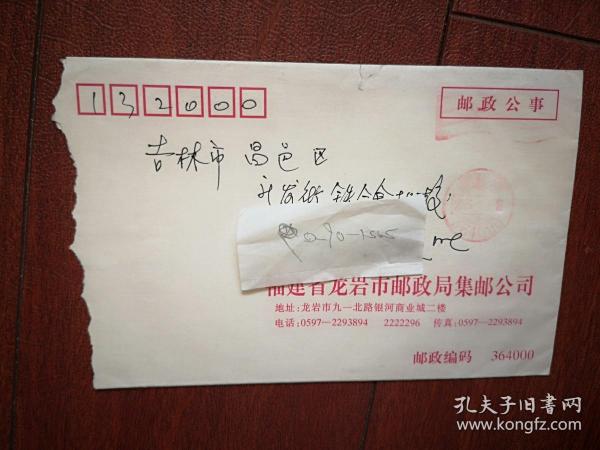 132000
邮政公事
吉林市 昌邑区
福建省龙岩市邮政局集邮公司
地址:龙岩市九一北路银河商业城二楼
电话:0597—2293894 2222296 传真:0597—2293894
邮政编码 364000
孔夫子旧书网
www.kongfz.com